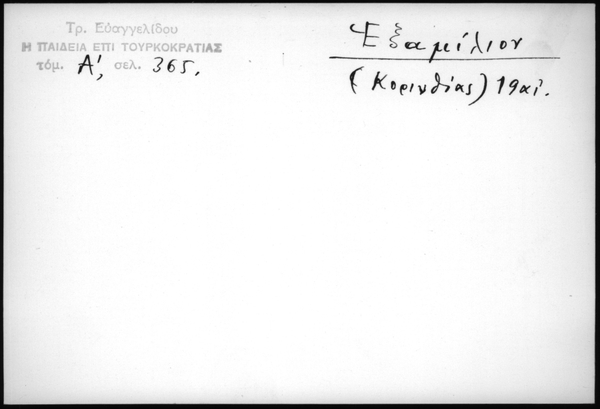 Τρ. Εὐαγγελίδου
Η ΠΑΙΔΕΙΑ ΕΠΙ ΤΟΥΡΚΟΚΡΑΤΙΑΣ
τόμ. Α', σελ. 365.
Ἑξαμίλιον
(Κορινθίας) 19αἰ.